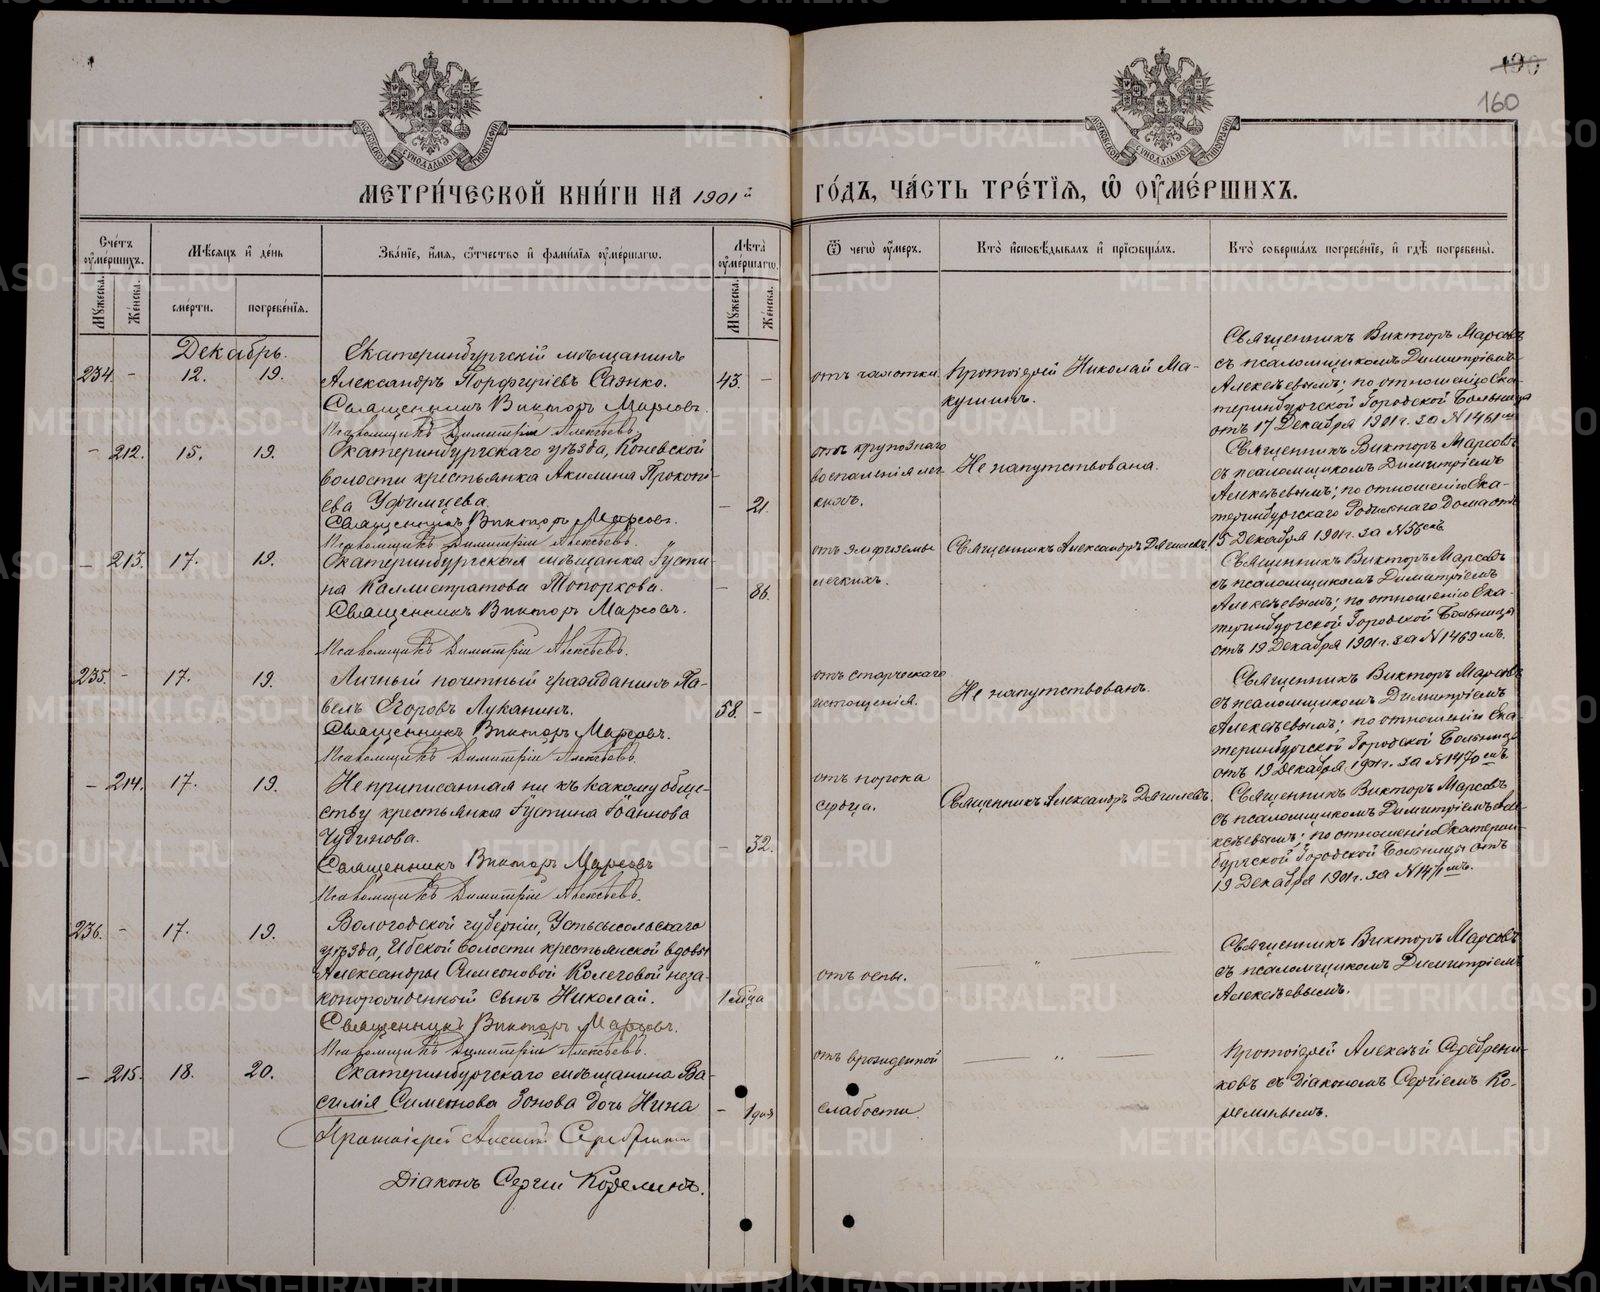 160
МЕТРИ́ЧЕСКОЙ КНИ́ГИ НА 1901й ГО́ДЪ, ЧА́СТЬ ТРЕ́ТІѦ, Ѿ ОУ҆МЕ́РШИХЪ.
Сче́тъ оу҆ме́ршихъ.
Мѣсѧцъ и҆ де́нь
Зва́нїе, и҆́мѧ, ѻ҆́тчество и҆ фами́лїѧ оу҆ме́ршагѡ.
Лѣта̀ оу҆ме́ршагѡ.
Ѿ чегѡ̀ оу҆́меръ.
Кто̀ и҆сповѣ́дывалъ и҆ прїѡбща́лъ.
Кто̀ соверша́лъ погребе́нїе, и҆ гдѣ̀ погребены̀.
Мꙋ́жеска.
Же́нска.
сме́рти.
погребе́нїѧ.
Мꙋ́жеска.
Же́нска.
Декабрь.
234. - 12. 19.
Екатеринбургскій мѣщанинъ
Александръ Порфиріевъ Саэнко.
Священникъ Викторъ Марсовъ.
Псаломщикъ Димитрій Алексѣевъ.
43. -
отъ чахотки.
Протоіерей Николай Ма-
кушинъ.
Священникъ Викторъ Марсовъ
съ псаломщикомъ Димитріемъ
Алексѣевымъ; по отношенію Ека-
теринбургской Городской Больницы
отъ 17 Декабря 1901 г. за N 1461мъ
- 212. 15. 19.
Екатеринбургскаго уѣзда, Коневской
волости крестьянка Акилина Прокопі-
ева Уфимцева.
Священникъ Викторъ Марсовъ.
Псаломщикъ Димитрій Алексѣевъ.
- 21.
отъ крупознаго
воспаленія лег-
кихъ.
Не напутствована.
Священникъ Викторъ Марсовъ
съ псаломщикомъ Димитріемъ
Алексѣевымъ; по отношенію Ека-
теринбургскаго Родильнаго Дома отъ
15 Декабря 1901 г. за N
- 213. 17. 19.
Екатеринбургская мѣщанка Іусти-
на Каллистратова Топоркова.
Священникъ Викторъ Марсовъ.
Псаломщикъ Димитрій Алексѣевъ.
- 86.
отъ эмфиземы
легкихъ.
Священникъ Александръ Дягилевъ.
Священникъ Викторъ Марсовъ
съ псаломщикомъ Димитріемъ
Алексѣевымъ; по отношенію Ека-
теринбургской Городской Больницы
отъ 19 Декабря 1901 г. за N 1469мъ.
235. - 17. 19.
Личный почетный гражданинъ Па-
велъ Егоровъ Луканинъ.
Священникъ Викторъ Марсовъ.
Псаломщикъ Димитрій Алексѣевъ.
58. -
отъ старческаго
истощенія.
Не напутствованъ.
Священникъ Викторъ Марсовъ
съ псаломщикомъ Димитріемъ
Алексѣевымъ; по отношенію Ека-
теринбургской Городской Больницы
отъ 19 Декабря 1901 г. за N 1470мъ.
- 214. 17. 19.
Не приписанная ни къ какому обще-
ству крестьянка Іустина Іоаннова
Чудинова.
Священникъ Викторъ Марсовъ
Псаломщикъ Димитрій Алексѣевъ.
- 32.
отъ порока
сердца.
Священникъ Александръ Дягилевъ.
Священникъ Викторъ Марсовъ
съ псаломщикомъ Димитріемъ Але-
ксѣевымъ; по отношенію Екатерин-
бургской Городской Больницы отъ
19 Декабря 1901 г. за N 1471мъ.
236. - 17. 19.
Вологодской губерніи, Устьсысольскаго
уѣзда, Ибской волости крестьянской вдовы
Александры Симеоновой Колеговой неза-
коннорожденный сынъ Николай.
Священникъ Викторъ Марсовъ.
Псаломщикъ Димитрій Алексѣевъ.
1 мѣца
отъ оспы.
— „ —
Священникъ Викторъ Марсовъ
съ псаломщикомъ Димитріемъ
Алексѣевымъ.
- 215. 18. 20.
Екатеринбургскаго мѣщанина Ва-
силія Симеонова Зонова дочь Нина
Протоіерей Алексій Серебренниковъ
Діаконъ Сергій Корелинъ.
- 1 дня
отъ врожденной
слабости.
— „ —
Протоіерей Алексѣй Серебрени-
ковъ съ діакономъ Сергіемъ Ко-
релинымъ.
METRIKI.GASO-URAL.RU